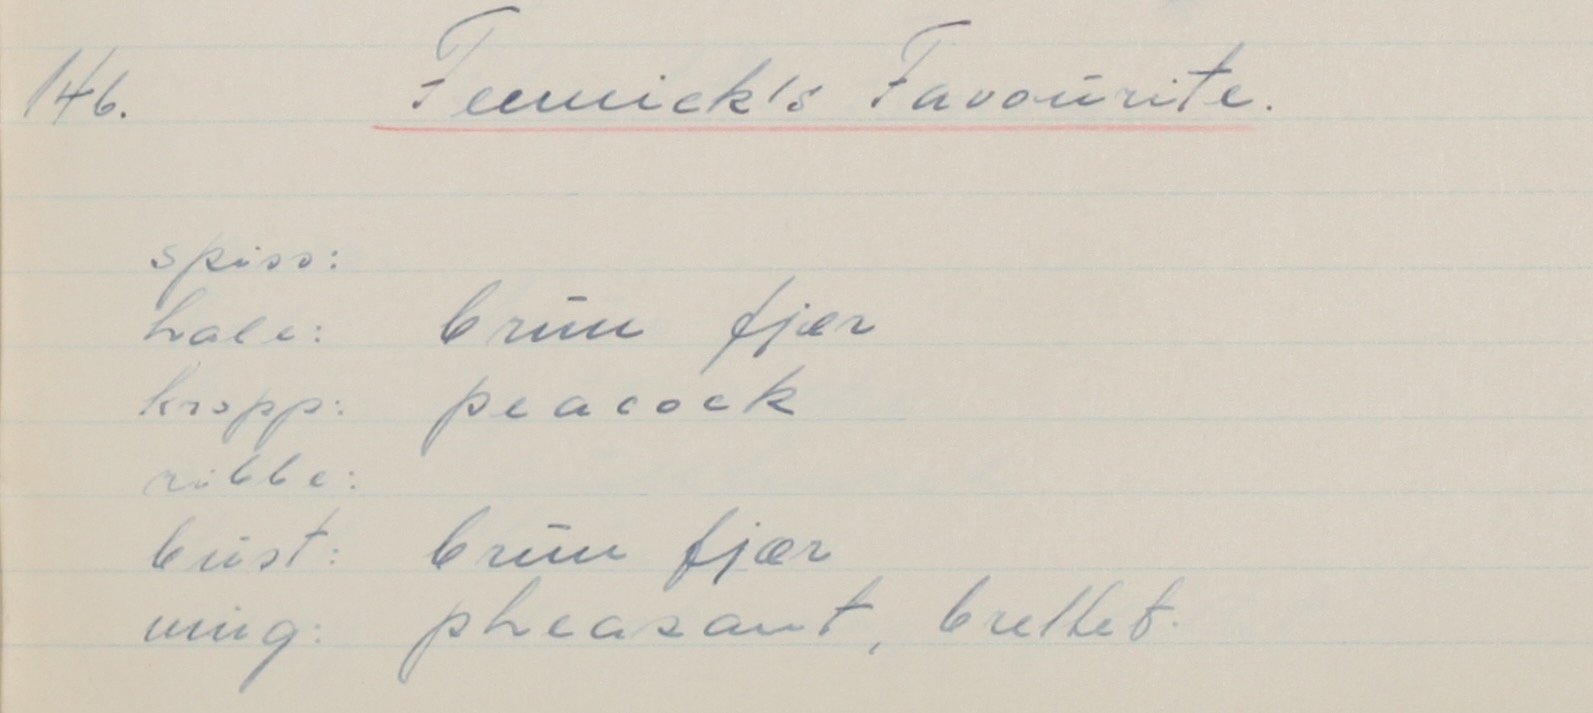 146. Fenwick's Favourite.
spiss:
hale: brun fjær
kropp: peacock
ribbe:
bust: brun fjær
ving: pheasant, brettet.